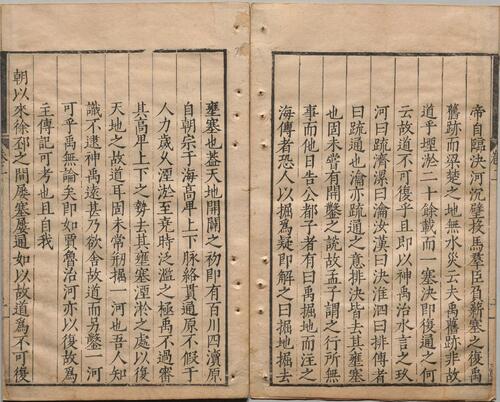 帝自臨決河沉璧投馬羣臣乃薪塞之復禹
舊跡而梁楚之地無水災云夫禹舊跡非故
道乎堙淤二十餘載而一塞決即復通之何
云故道不可復乎且即以神禹治水言之攷
河曰疏濟漯曰瀹汝漢曰決淮泗曰排傳者
曰疏通也瀹亦疏通之意排決皆去其壅塞
也固未甞有開鑿之說故孟子謂之行所無
事而他日告公都子者有曰禹掘地而注之
海傳者恐人以掘爲疑即解之曰掘地掘去
壅塞也蓋天地開闢之初即有百川四瀆原
自朝宗于海高卑上下脉絡貫通原不假于
人力歲久湮淤至堯時泛濫之極禹不過審
其高卑上下之勢去其壅塞湮淤之處以復
天地之故道耳固未常剏掘一河也吾人知
識不逮神禹遠甚乃欲舍故道而另鑿一河
可乎禹無論矣即如賈魯治河亦以復故爲
主傳記可考也且自我
朝以來徐邳之間屢塞屢通如以故道爲不可復